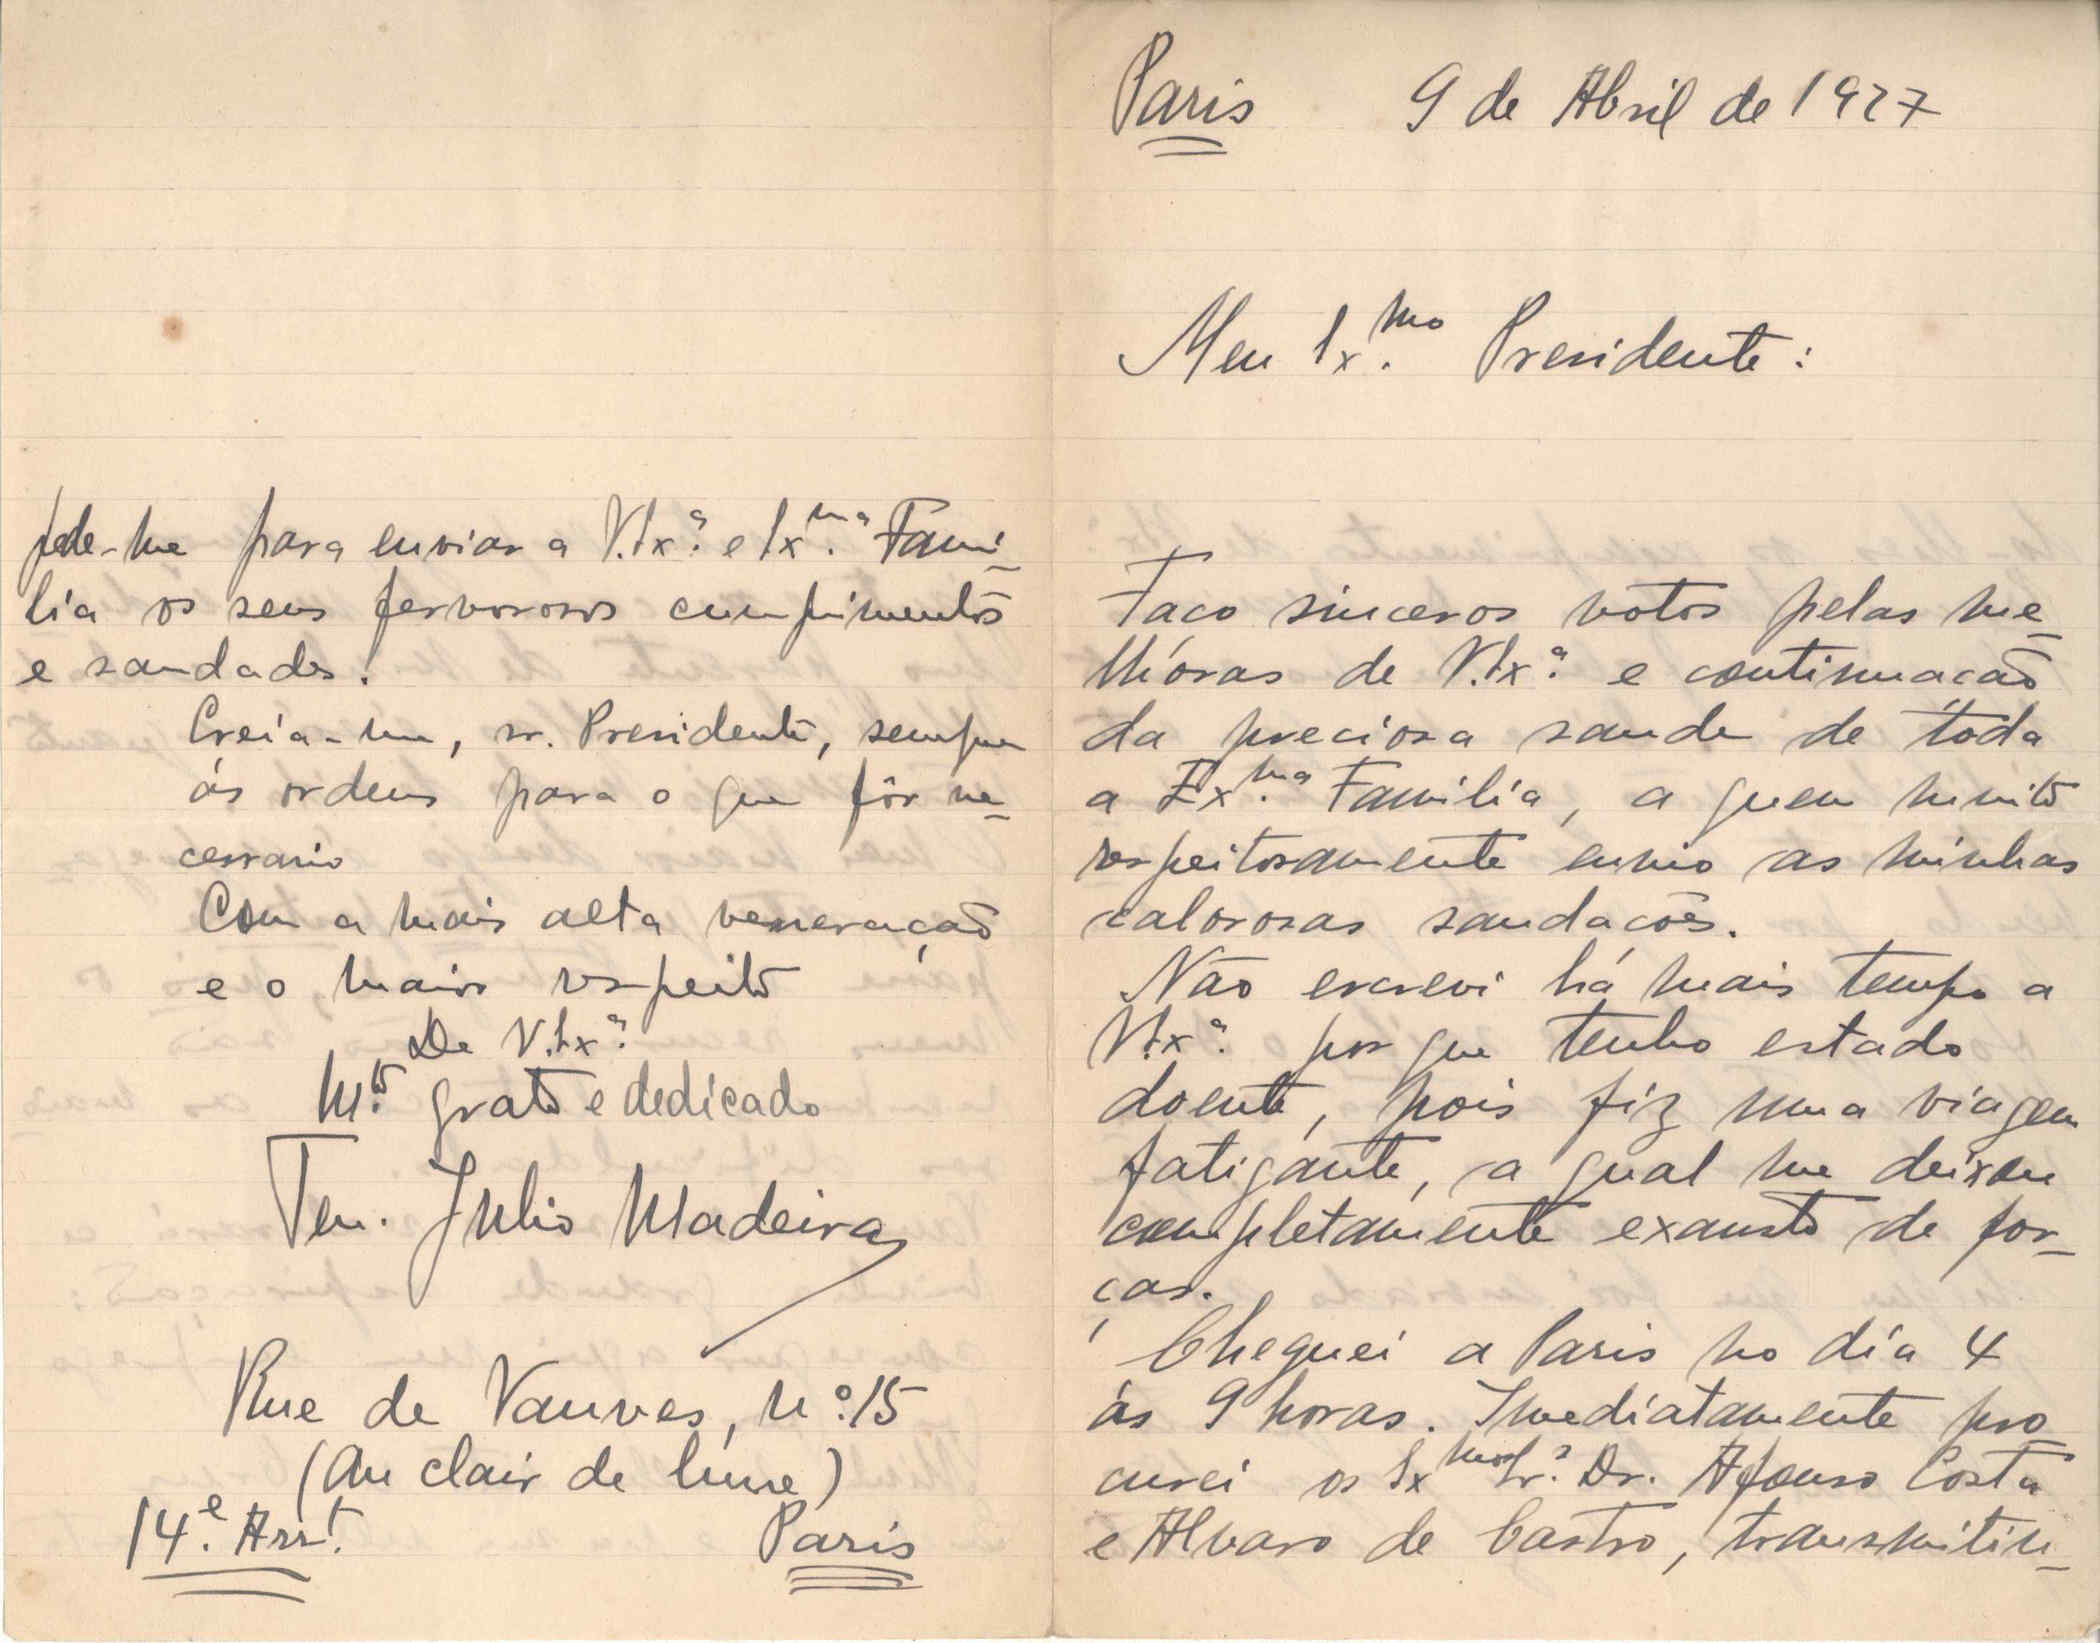 Paris 9 de Abril de 1927
Meu Ex.mo Presidente:
Faco sinceros votos pelas me-
lhóras de V.Ex.a e continuacão
da preciosa saude de toda
a Ex.ma Familia, a quem muito
respeitosamente envio as minhas
calorosas saudacões.
Não escrevi há mais tempo a
V.Ex.a por que tenho estado
doente, pois fiz uma viagem
fatigante, a qual me deixou
completamente exausto de for-
ças.
Cheguei a Paris no dia 4
ás 9 horas. Imediatamente pro-
curei os Ex.mos Sr.s Dr. Afonso Costa
e Alvaro de Castro, transmitin-
pede-me para enviar a V.Ex.a e Ex.ma Fami-
lia os seus fervorosos cumprimentos
e saudades.
Creia-me, sr. Presidente, sempre
ás ordens para o que fôr ne-
cessario
Com a mais alta veneração
e o maior respeito
De V.Ex.a
M.to grato e dedicado
Ten. Julio Madeira
Rue de Vanves, n.o 15
(Au clair de lune)
14.e Arr.t Paris